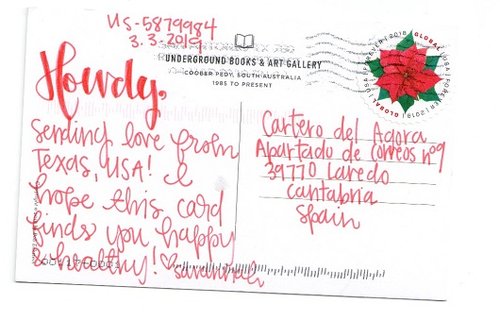 US-5879984
3.3.2019
UNDERGROUND BOOKS & ART GALLERY
COOBER PEDY, SOUTH AUSTRALIA
1985 TO PRESENT
Howdy,
sending love from
Texas, USA! I
hope this card
finds you happy
& healthy! ♡ savannah
Cartero del Agora
Apartado de Correos nº9
39770 Laredo
Cantabria
Spain
GLOBAL